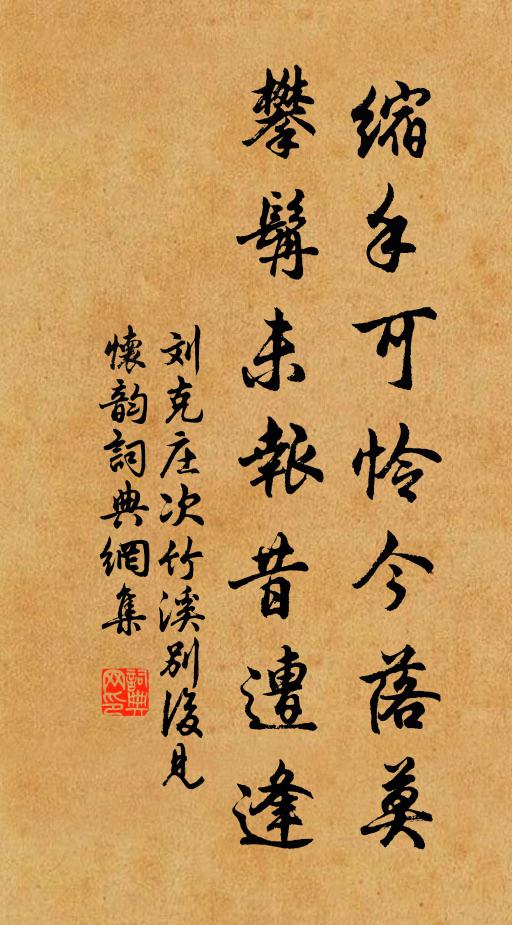 缩手可怜今落莫
攀髯未报昔遭逢
刘克庄次竹溪别后见
怀韵词典网集
词典网印